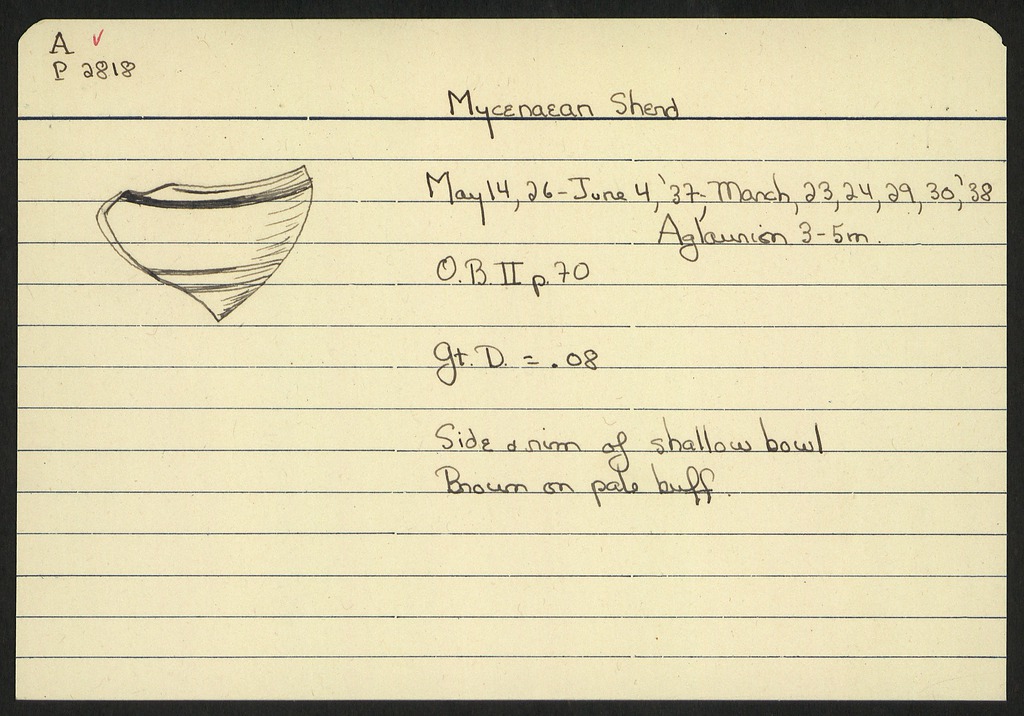 A ✓
P 2818
Mycenaean Sherd
May 14, 26-June 4, '37- March, 23, 24, 29, 30, '38
Aglaurion 3-5m.
O.B. II p. 70
Gt. D. = .08
Side & rim of shallow bowl
Brown on pale buff.